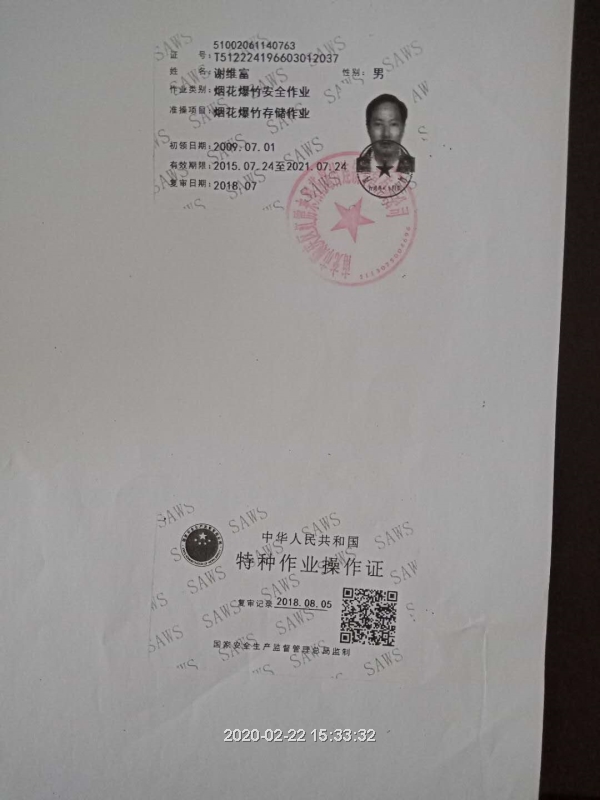 51002061140763
证 号:T512224196603012037
姓 名:谢维富 性别:男
作业类别:烟花爆竹安全作业
准操项目:烟花爆竹存储作业
初领日期:2009.07.01
有效期限:2015.07.24至2021.07.24
复审日期:2018.07
SAWS
中华人民共和国
特种作业操作证
复审记录 2018.08.05
国家安全生产监督管理总局监制
2020-02-22 15:33:32